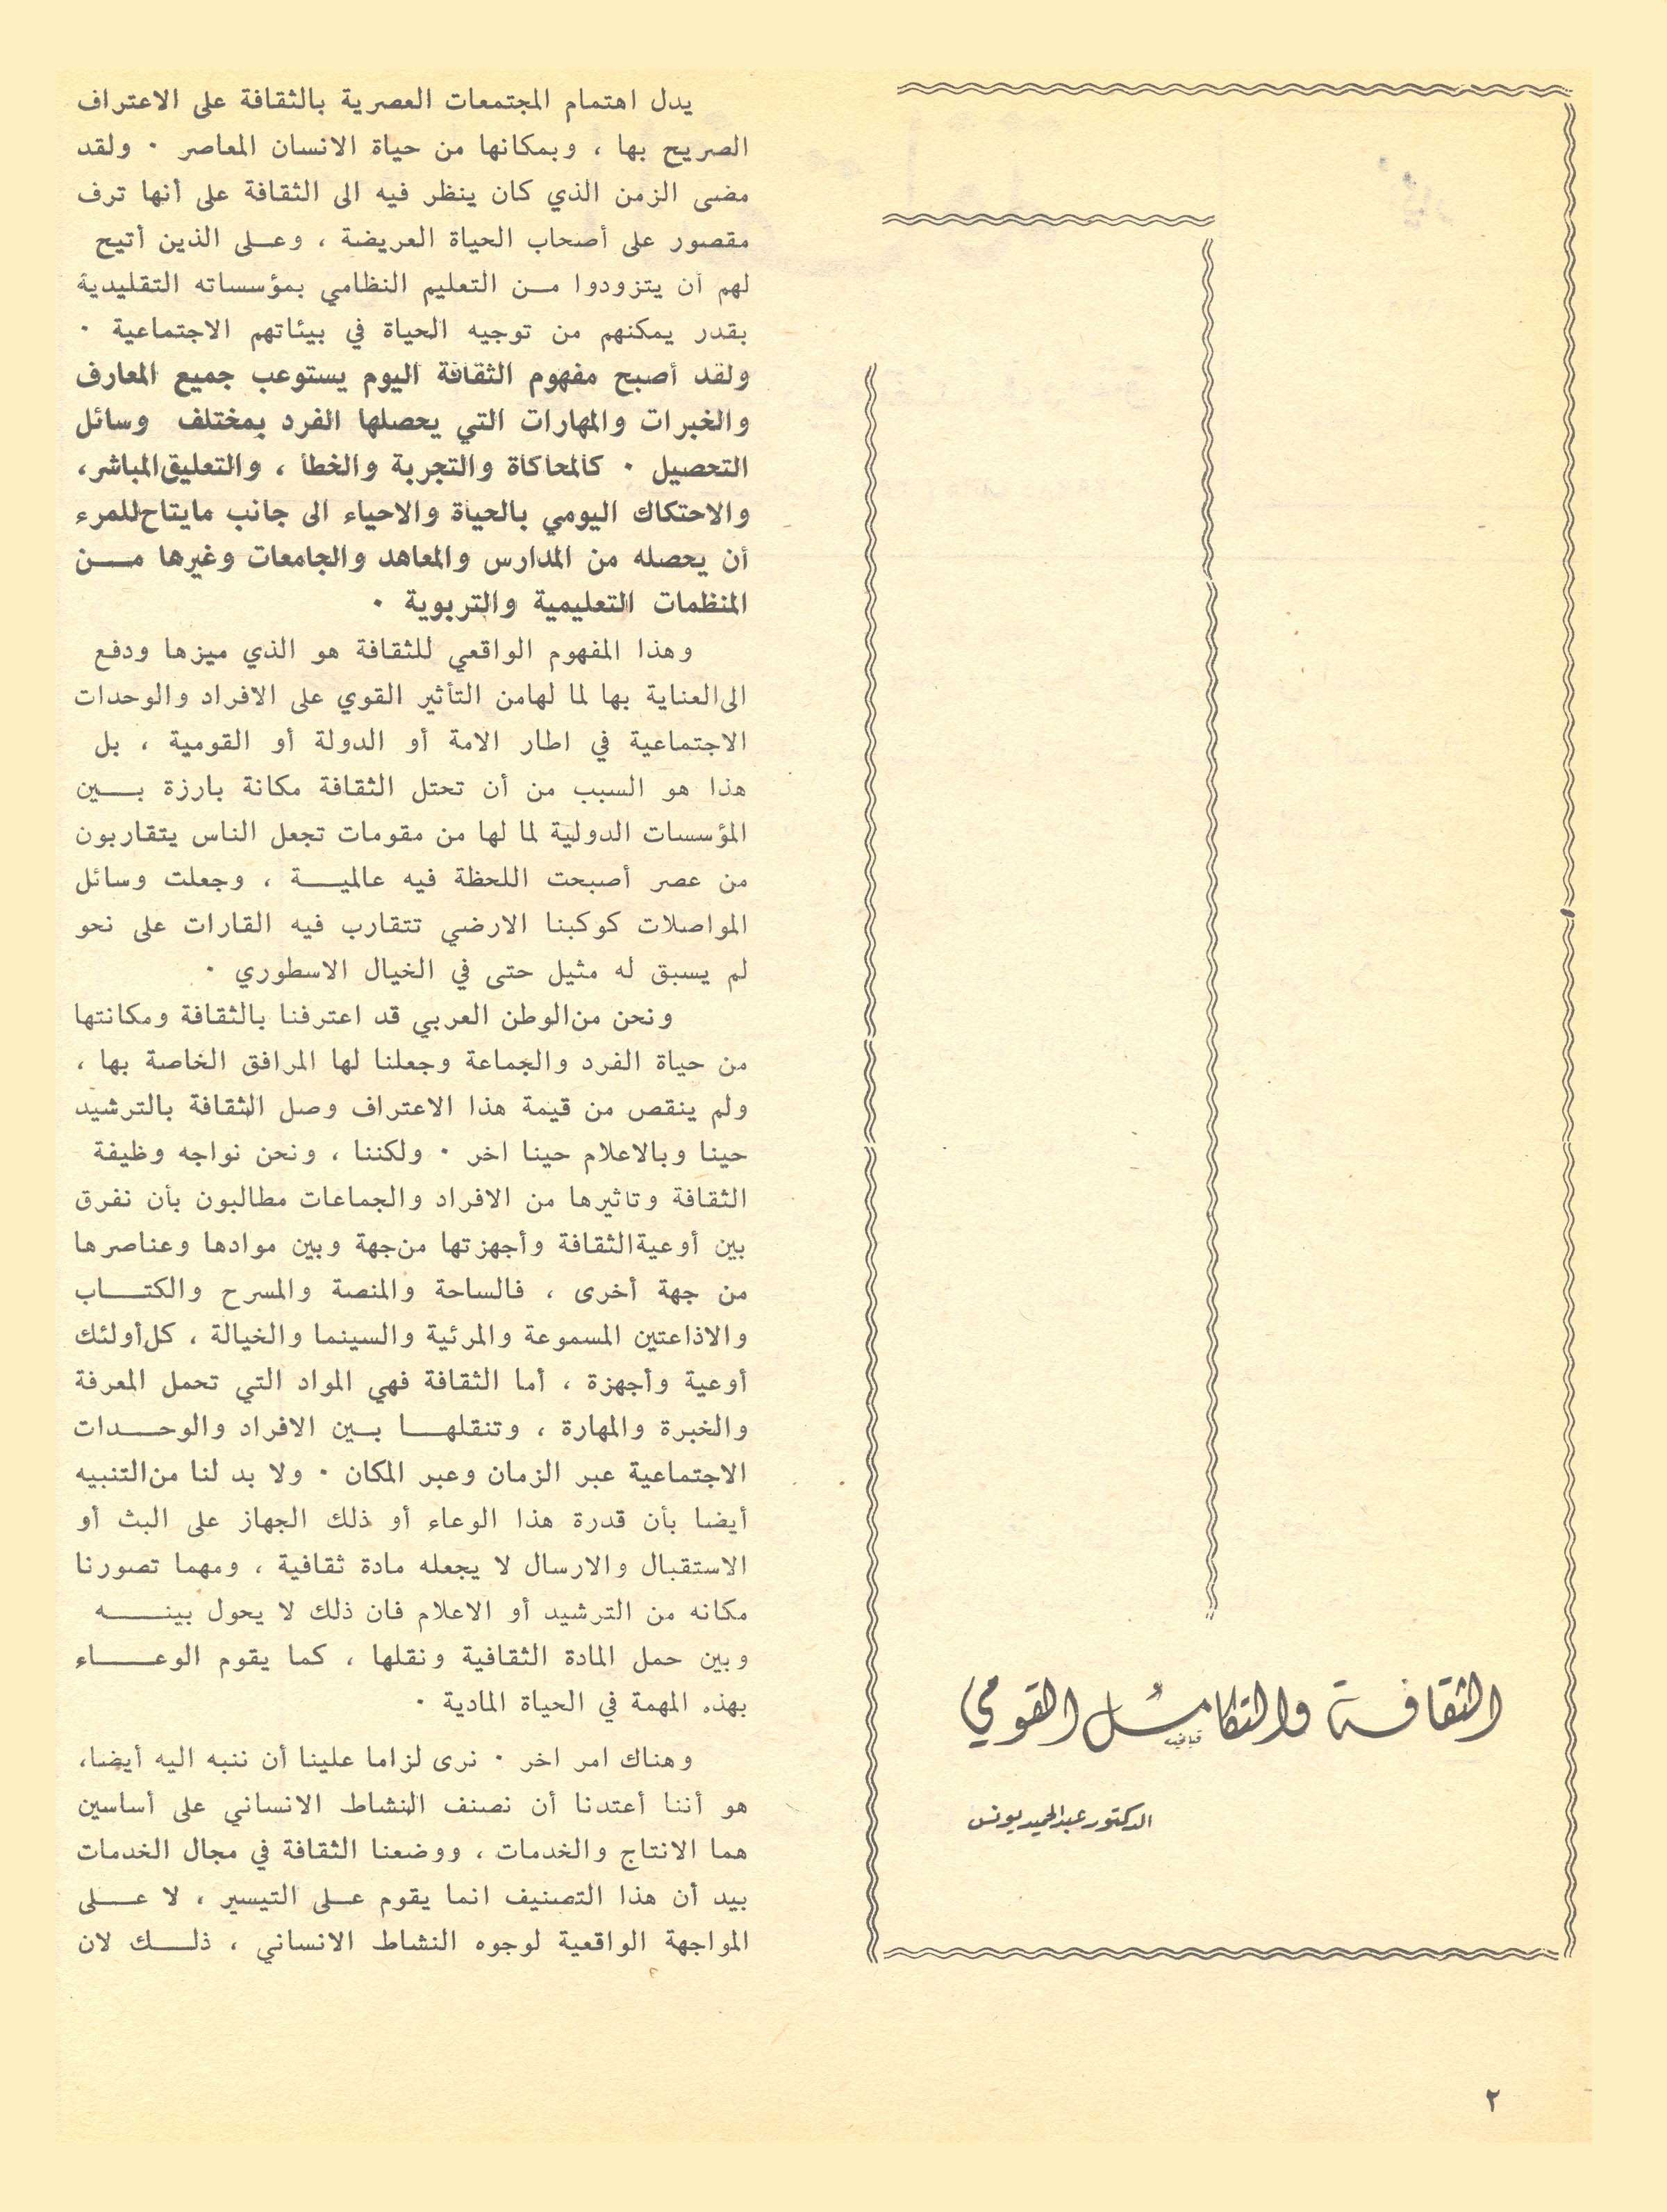 الثقافة والتكامل القومي
الدكتور عبدالحميد يونس
يدل اهتمام المجتمعات العصرية بالثقافة على الاعتراف
الصريح بها ، وبمكانها من حياة الانسان المعاصر ٠ ولقد
مضى الزمن الذي كان ينظر فيه الى الثقافة على أنها ترف
مقصور على أصحاب الحياة العريضة ، وعلى الذين أتيح
لهم أن يتزودوا من التعليم النظامي بمؤسساته التقليدية
بقدر يمكنهم من توجيه الحياة في بيئاتهم الاجتماعية ٠
ولقد أصبح مفهوم الثقافة اليوم يستوعب جميع المعارف
والخبرات والمهارات التي يحصلها الفرد بمختلف وسائل
التحصيل ٠ كالمحاكاة والتجربة والخطأ ، والتعليق المباشر،
والاحتكاك اليومي بالحياة والاحياء الى جانب مايتاح للمرء
أن يحصله من المدارس والمعاهد والجامعات وغيرها من
المنظمات التعليمية والتربوية ٠
وهذا المفهوم الواقعي للثقافة هو الذي ميزها ودفع
الى العناية بها لما لهامن التأثير القوي على الافراد والوحدات
الاجتماعية في اطار الامة أو الدولة أو القومية ، بل
هذا هو السبب من أن تحتل الثقافة مكانة بارزة بين
المؤسسات الدولية لما لها من مقومات تجعل الناس يتقاربون
من عصر أصبحت اللحظة فيه عالمية ، وجعلت وسائل
المواصلات كوكبنا الارضي تتقارب فيه القارات على نحو
لم يسبق له مثيل حتى في الخيال الاسطوري ٠
ونحن من الوطن العربي قد اعترفنا بالثقافة ومكانتها
من حياة الفرد والجماعة وجعلنا لها المرافق الخاصة بها ،
ولم ينقص من قيمة هذا الاعتراف وصل الثقافة بالترشيد
حينا وبالاعلام حينا اخر ٠ ولكننا ، ونحن نواجه وظيفة
الثقافة وتاثيرها من الافراد والجماعات مطالبون بأن نفرق
بين أوعية الثقافة وأجهزتها من جهة وبين موادها وعناصرها
من جهة أخرى ، فالساحة والمنصة والمسرح والكتاب
والاذاعتين المسموعة والمرئية والسينما والخيالة ، كل أولئك
أوعية وأجهزة ، أما الثقافة فهي المواد التي تحمل المعرفة
والخبرة والمهارة ، وتنقلها بين الافراد والوحدات
الاجتماعية عبر الزمان وعبر المكان ٠ ولا بد لنا من التنبيه
أيضا بأن قدرة هذا الوعاء أو ذلك الجهاز على البث أو
الاستقبال والارسال لا يجعله مادة ثقافية ، ومهما تصورنا
مكانه من الترشيد أو الاعلام فان ذلك لا يحول بينه
وبين حمل المادة الثقافية ونقلها ، كما يقوم الوعاء
بهذه المهمة في الحياة المادية ٠
وهناك امر اخر ٠ نرى لزاما علينا أن ننبه اليه أيضا،
هو أننا أعتدنا أن نصنف النشاط الانساني على أساسين
هما الانتاج والخدمات ، ووضعنا الثقافة في مجال الخدمات
بيد أن هذا التصنيف انما يقوم على التيسير ، لا على
المواجهة الواقعية لوجوه النشاط الانساني ، ذلك لان
٢